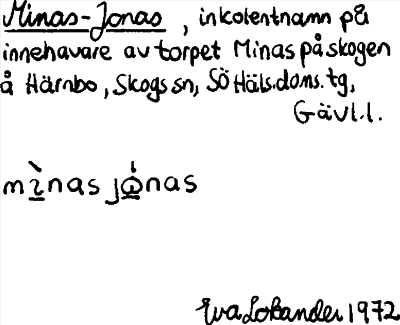 Minas-Jonas, inkolentnamn på
innehavare av torpet Minas på skogen
å Härnbo, Skogs sn, Sö Häls. doms. tg,
Gävl.l.
mı̀nas jånas
Eva Lobander 1972